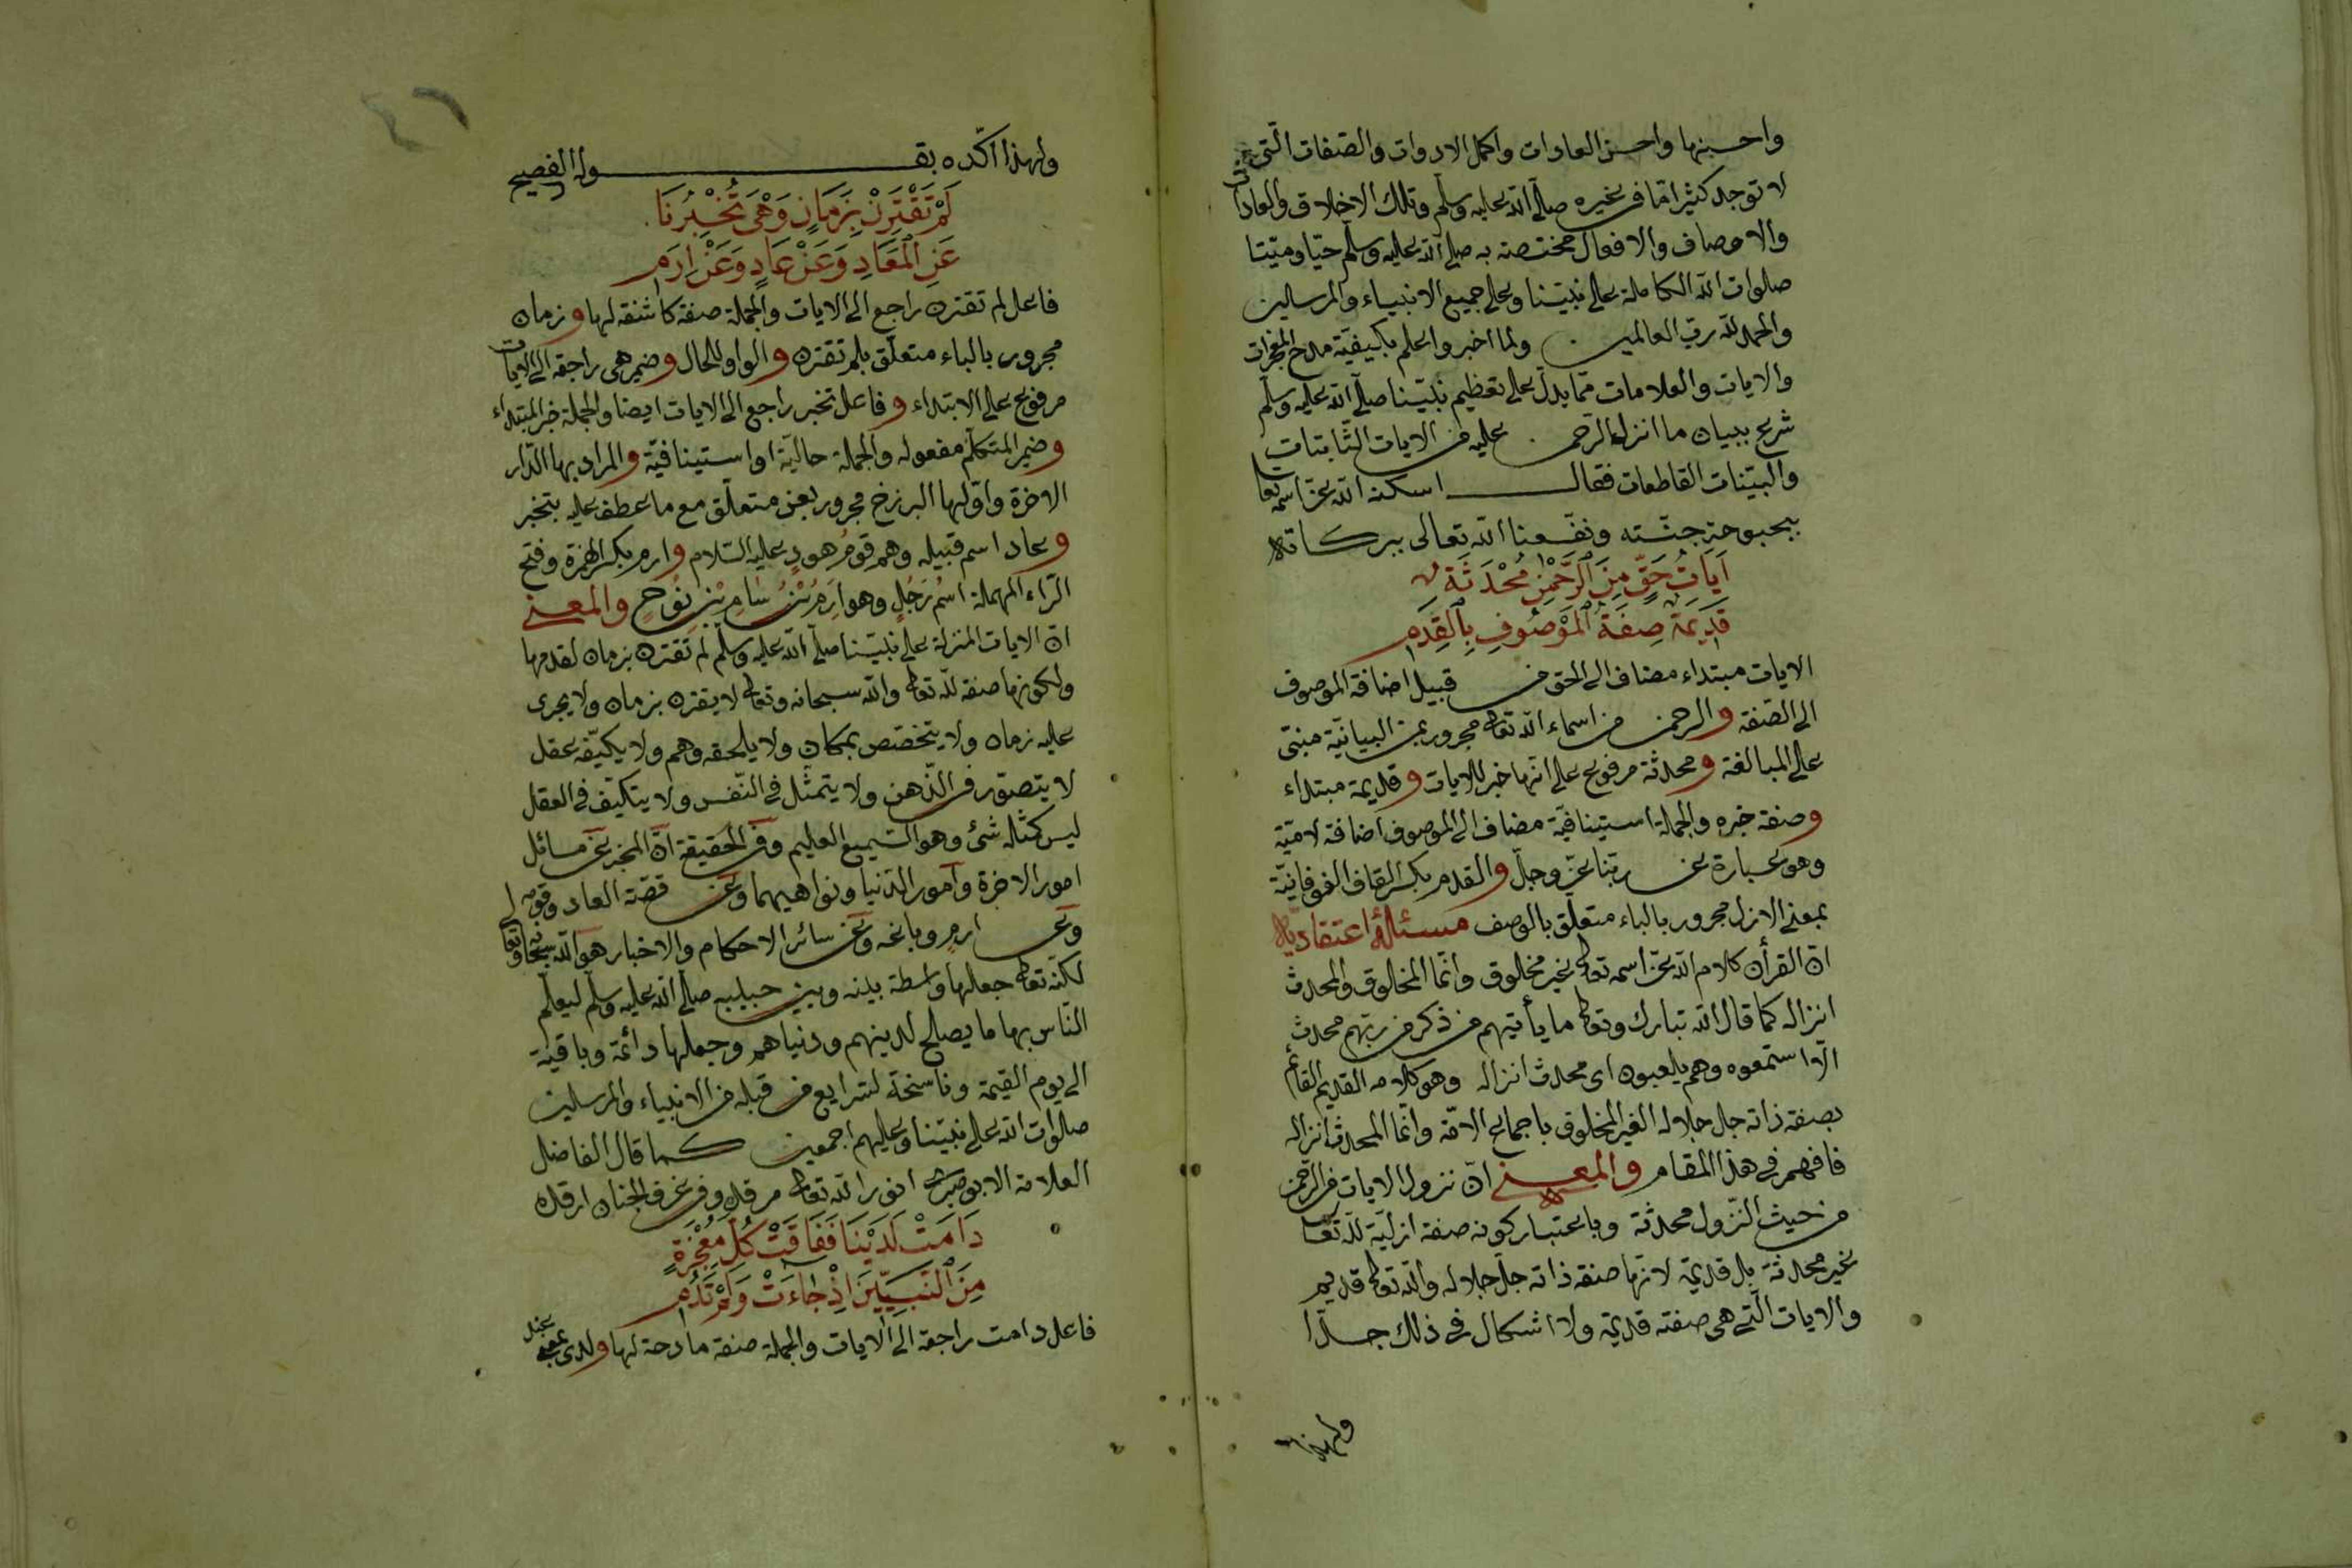 واحسنها واحسن العادات واكمل الادوات والصفات الّتى
لا توجد كثيرا مّا فى غيره صلّى الله عليه وسلّم وتلك الاخلاق والعادات
والاوصاف والافعال مختصة به صلى الله عليه وسلم حيّا وميّتا
صلوات الله الكاملة على نبيّنا وعلى جميع الانبياء والمرسلين
والحمد للّه ربّ العالمين ولما اخبر واعلم بكيفيّة مدح المعجزات
والايات والعلامات ممّا يدلّ على تعظيم نبيّنا صلّى الله عليه وسلّم
شرع ببيان ما انزله الرّحمن عليه من الايات الثّابتات
والبيّنات القاطعات فقال اسكنه الله عزّ اسمه تعا
بحبوحة جنّته ونفّعنا اللّه تعالى ببركاته
اٰيَاتُ حَقٍّ مِنَ ٱلرَّحْمٰنِ مُحْدَثَةٌ
قَدِيمَةٌ صِفَةُ ٱلْمَوْصُوفِ بِالْقِدَمِ
الايات مبتداء مضاف الى الحق من قبيل اضافة الموصوف
الى الصّفة والرحمن من اسماء الله تعالى مجرور بمن البيانيّة مبنى
على المبالغة ومحدثة مرفوع على انّها خبر للايات وقديمة مبتداء
وصفة خبره والجملة استينافيّة مضاف الى الموصوف اضافة لاميّة
وهو عبارة عن ربّنا عزّ وجلّ والقدم بكسر القاف الفوقانيّة
بمعنى الازل مجرور بالباء متعلّق بالوصف مسئلةٌ اعتقاديّة
انّ القرأن كلام الله عزّ اسمه تعالى غير مخلوق وانّما المخلوق والمحدث
انزاله كما قال الله تبارك وتعالى ما يأتيهم من ذكر من ربّهم محدث
الّا استمعوه وهم يلعبون اى محدث انزاله وهو كلامه القديم القائم
بصفة ذاته جل جلاله الغير المخلوق باجماع الامّة وانّما المحدث انزاله
فافهم فى هذا المقام والمعنى انّ نزول الايات من الرّحمن
من حيث النّزول محدثة وباعتبار كونه صفة ازليّة للّه تعا
غير محدثة بل قديمة لانّها صفة ذاته جلّ جلاله والله تعالى قديم
والايات الّتى هى صفته قديمة ولا اشكال فى ذلك جدّا
ولهذا
ولهذا اكّده بقوله الفصيح
لَمْ تَقْتَرِنْ بِزَمَانٍ وَهْىَ تُخْبِرُنَا
عَنِ ٱلْمَعَادِ وَعَنْ عَادٍ وَعَنْ اِرَمِ
فاعل لم تقترن راجع الى الايات والجملة صفة كاشفة لها وزمان
مجرور بالباء متعلّق بلم تقترن والواو للحال وضمير هى راجعة الى الايات
مرفوع على الابتداء وفاعل تخبر راجع الى الايات ايضا والجملة خبر المبتداء
وضمير المتكلّم مفعوله والجملة حاليّة او استينافيّة والمراد بها الدّار
الاخرة واوّلها البرزخ مجرور بعن متعلّق مع ما عطف عليه بتخبر
وعاد اسم قبيله وهم قومُ هودٍ عليه السّلام وارم بكسر الهمزة وفتح
الرّاء المهملة اسْمُ رَجُلٍ وهو اِرَمُ بْنُ سَامِ بْنِ نُوحٍ والمعنى
انّ الايات المنزلة على نبيّنا صلّى الله عليه وسلّم لم تقترن بزمان لقدمها
ولكونها صفة للّه تعالى والله سبحانه وتعالى لا يقترن بزمان ولا يجرى
عليه زمان ولا يتخصّص بمكان ولا يلحقه وهم ولا يكيّفه عقل
لا يتصوّر فى الذّهن ولا يتمثّل فى النّفس ولا يتكيّف فى العقل
ليس كمثله شئ وهو السّميع العليم وفى الحقيقة انّ المخبر عن مسائل
امور الاخرة وامور الدّنيا ونواهيهما وعن قصّة العاد وقومه
وعن ارم وباغه وعن سائر الاحكام والاخبار هو الله سبحانه وتعا
لكنّه تعالى جعلها واسطة بينه وبين حبيبه صلّى الله عليه وسلم ليعلم
النّاس بها ما يصلح لدينهم ودنياهم وجعلها دائمة وباقية
الى يوم القيمة وناسخة لشرايع من قبله من الانبياء والمرسلين
صلوات الله على نبيّنا وعليهم اجمعين كما قال الفاضل
العلامة الابوصيرى انور الله تعالى مرقده وفى غرف الجنان ارقده
دَامَتْ لَدَيْنَا فَفَاقَتْ كُلَّ مُعْجِزَةٍ
مِنَ ٱلنَّبِيِّينَ اِذْ جَاءَتْ وَلَمْ تَدُمِ
فاعل دامت راجعة الى الايات والجملة صفة مادحة لها ولدى بمعنى عند